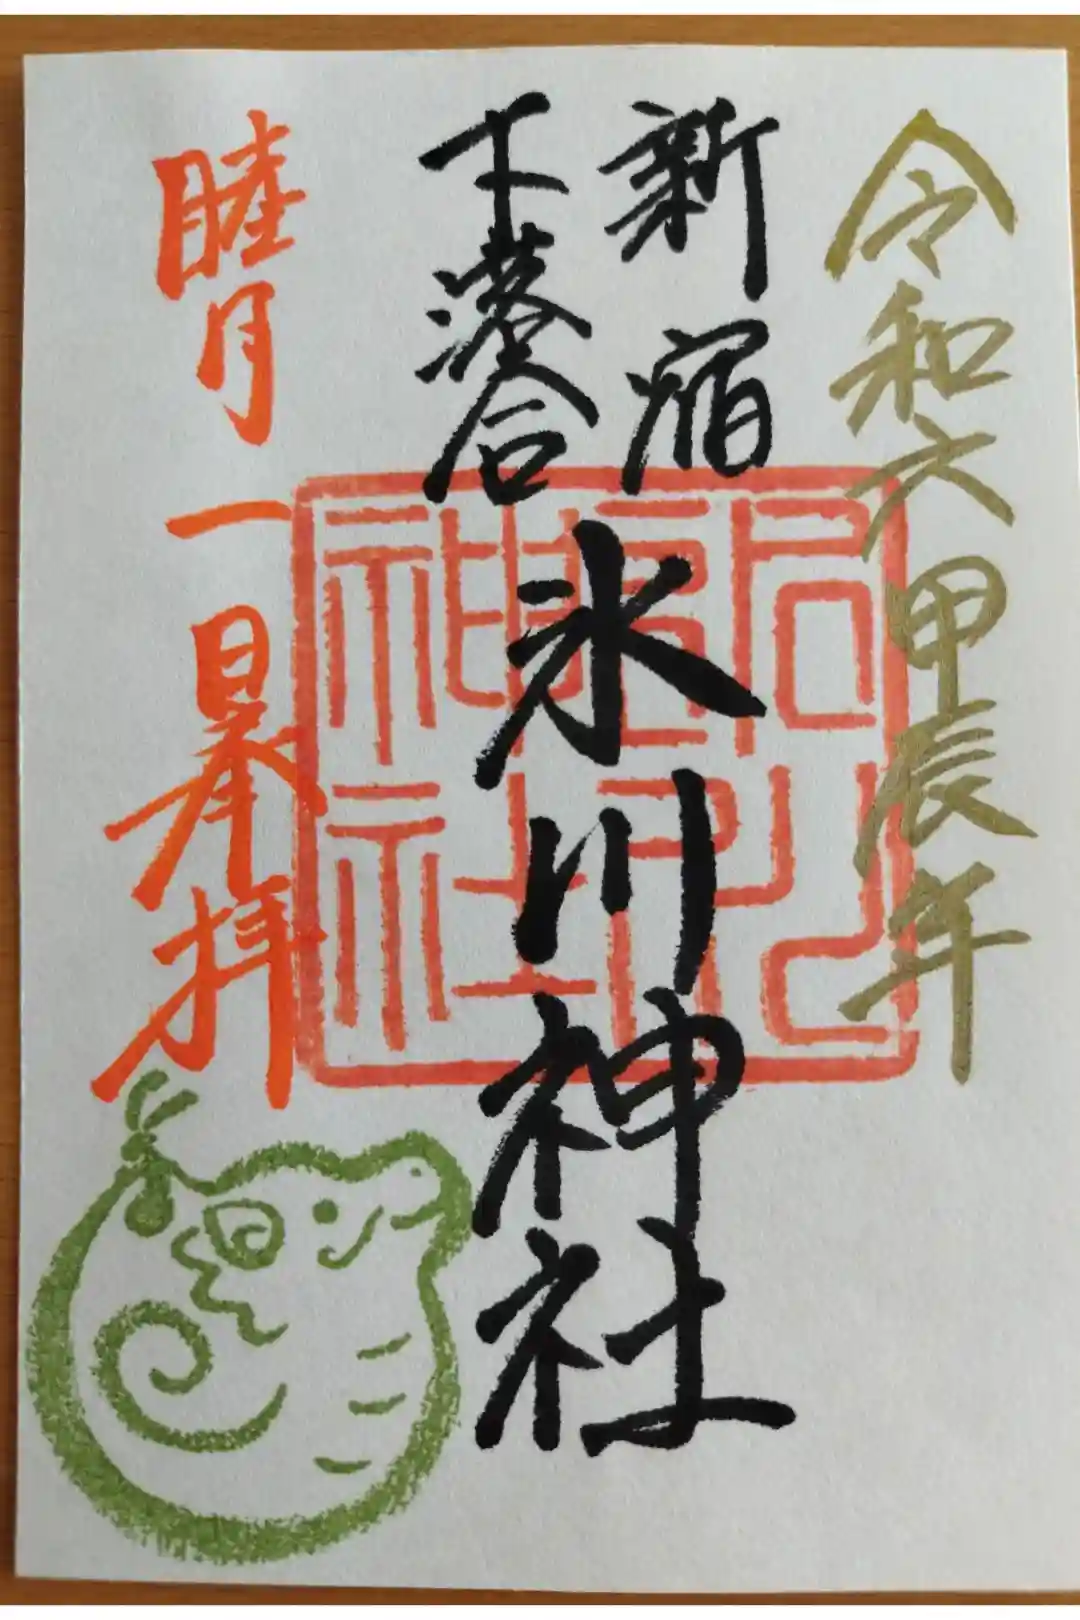 令和六甲辰年
新宿
下落合
氷川神社
睦月一日奉拝